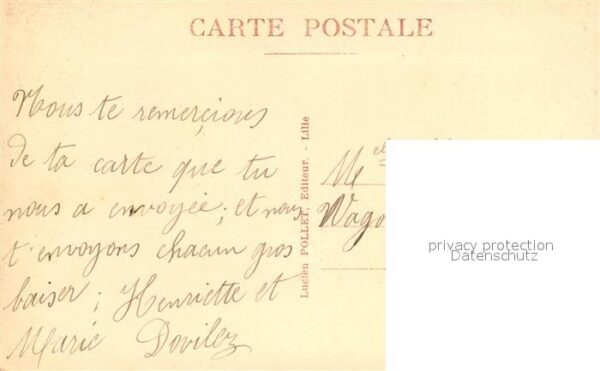 CARTE POSTALE
Nous te remerçions
de ta carte que tu
nous a envoyée; et nous
t'envoyons chacun gros
baiser; Henriette et
Marie Dovilez
Lucien POLLET, Editeur. - Lille
Mel
Wago
privacy protection
Datenschutz